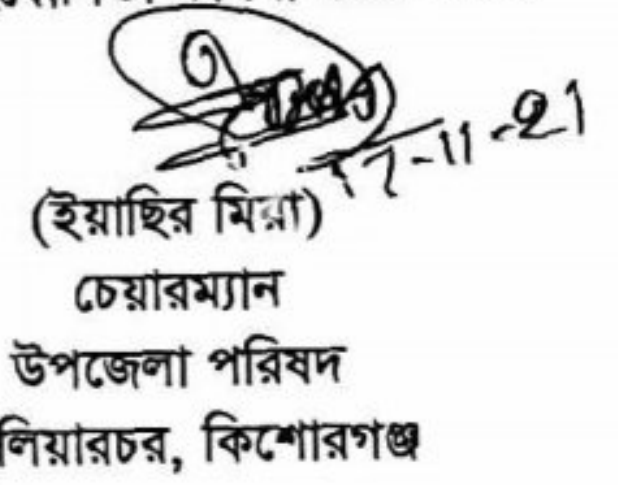 17-11-21
(ইয়াছির মিয়া)
চেয়ারম্যান
উপজেলা পরিষদ
লিয়ারচর, কিশোরগঞ্জ